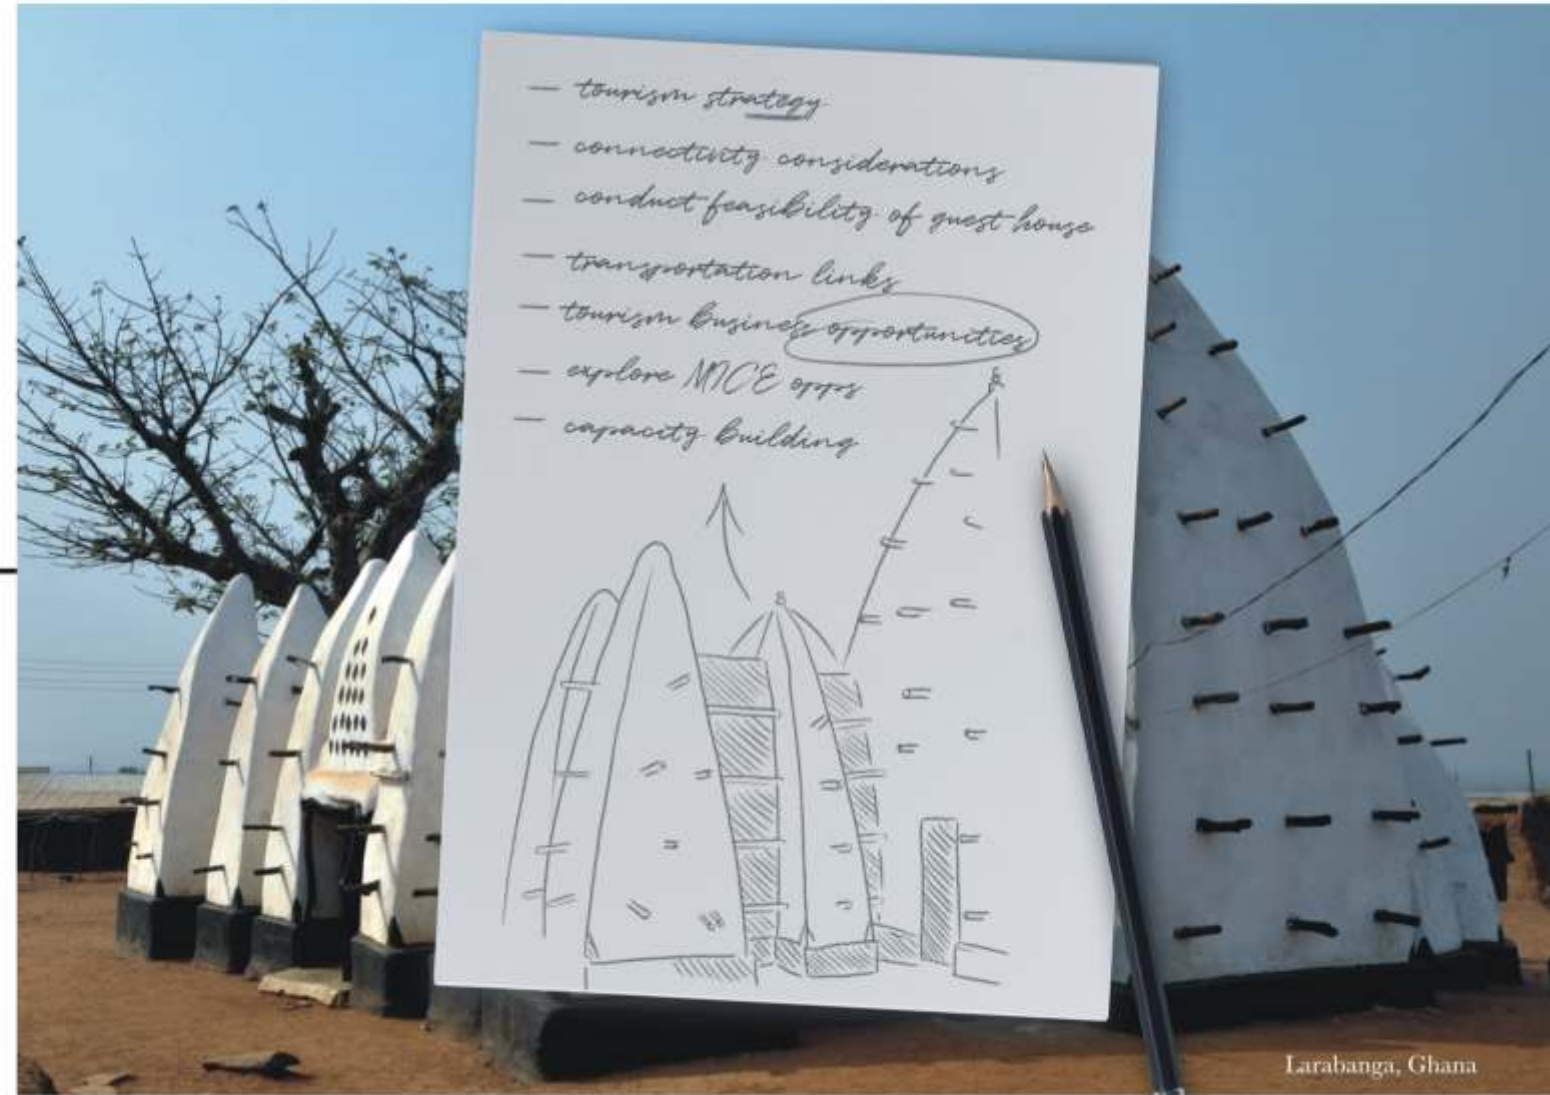 — tourism strategy
— connectivity considerations
— conduct feasibility of guest house
— transportation links
— tourism business opportunities
— explore MICE opps
— capacity building
Larabanga, Ghana